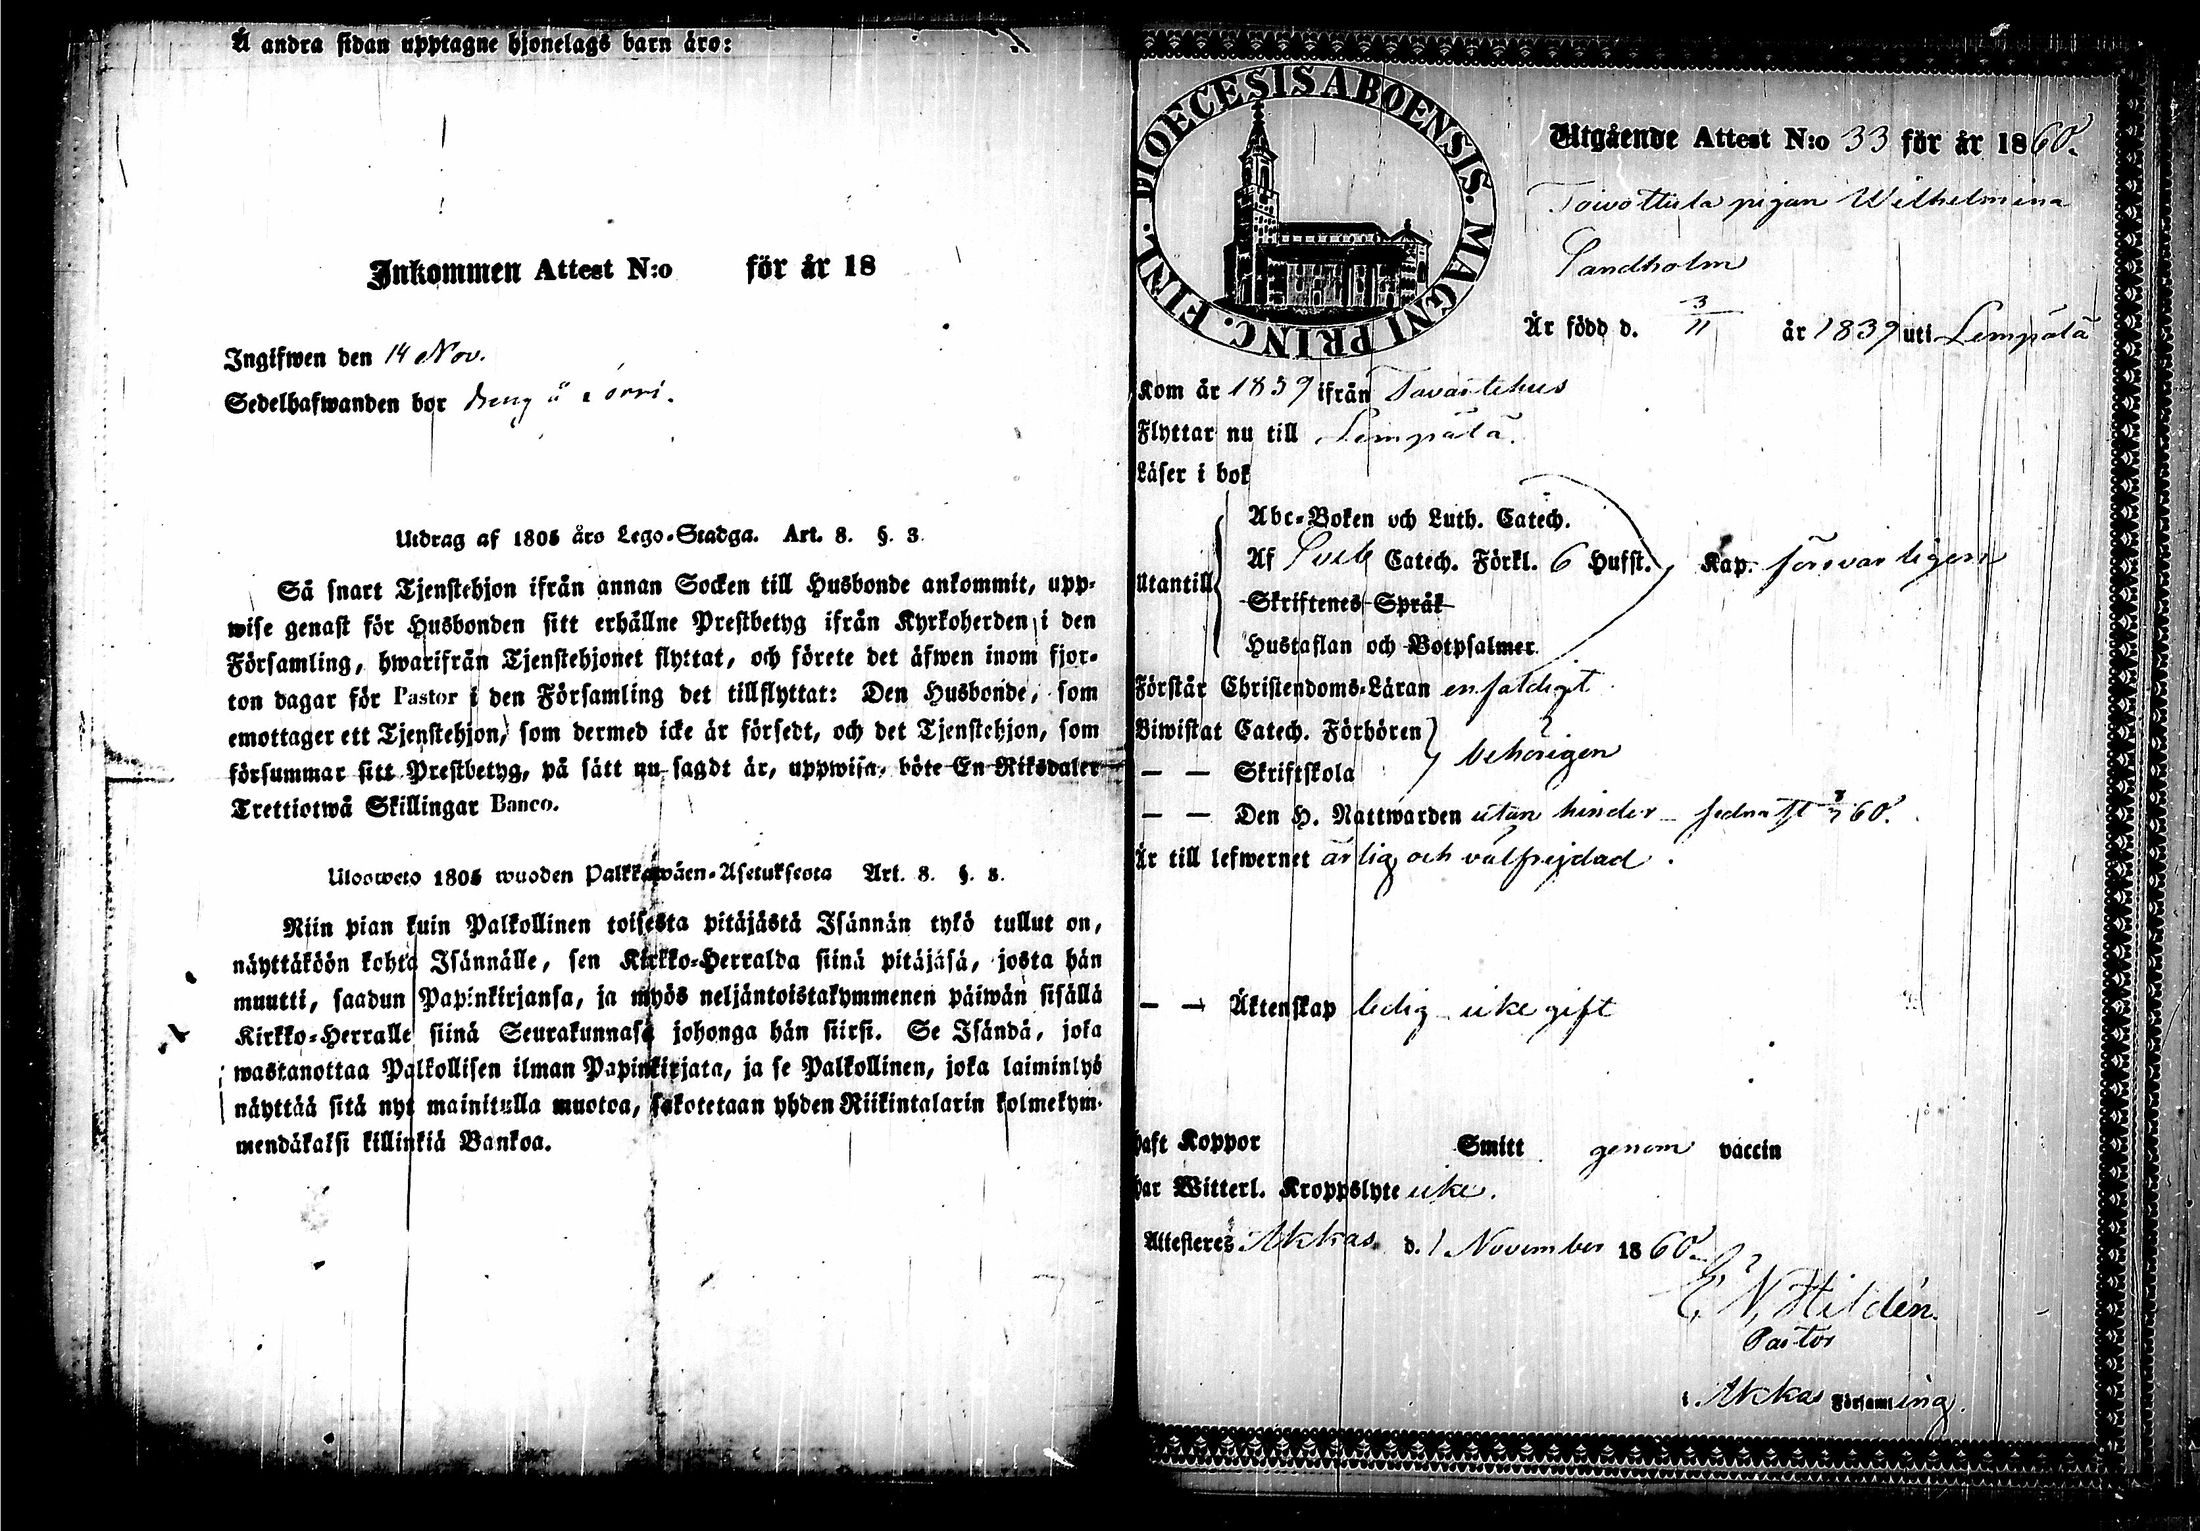 Å andra sidan upptagne hjonelags barn äro:
Inkommen Attest N:o för år 18
Ingifwen den 14 Nov.
Sedelhafwanden bor
Utdrag af 1805 års Lego-Stadga. Art. 8. §. 3.
Så snart Tjenstehjon ifrån annan Socken till Husbonde ankommit, upp-
wise genast för Husbonden sitt erhållne Prestbetyg ifrån Kyrkoherden i den
Församling, hwarifrån Tjenstehjonet flyttat, och förete det äfwen inom fjor-
ton dagar för Pastor i den Församling det tillflyttat: Den Husbonde, som
emottager ett Tjenstehjon, som dermed icke är försedt, och det Tjenstehjon, som
försummar sitt Prestbetyg, på sätt nu sagdt är, uppwisa, böte En Riksdaler
Trettiotwå Skillingar Banco.
Ulosweto 1805 wuoden Palkkawäen-Asetuksesta Art. 8. §. 3.
Niin pian kuin Palkollinen toisesta pitäjästä Isännän tykö tullut on,
näyttäköön kohta Isännälle, sen Kirkko-Herralda siinä pitäjäsä, josta hän
muutti, saadun Papinkirjansa, ja myös neljäntoistakymmenen päiwän sisällä
Kirkko-Herralle siinä Seurakunnasa johonga hän siirsi. Se Isändä, joka
wastanottaa Palkollisen ilman Papinkirjata, ja se Palkollinen, joka laiminlyö
näyttää sitä nyt mainitulla muotoa, sakotetaan yhden Riikintalarin kolmekym-
mendäkaksi killinkiä Bankoa.
DIOECESIS ABOENSIS. MAGNI PRINC. FINL.
Utgående Attest N:o 33 för år 1860.
Toivottula pigan Wilhelmina
Sandholm
Är född d. 3/11 år 1839 uti Lempälä
Kom år 1859 ifrån Tavastehus
Flyttar nu till Lempälä.
Läser i bok
Utantill
Abc-Boken och Luth. Catech.
Af Sveb Catech. Förkl. 6 Hufst. Kap. försvarligen
Skriftenes Språk
Hustaflan och Botpsalmer
Förstår Christendoms-Läran enfaldigt
Biwistat Catech. Förhören
— — Skriftskola behörigen
— — Den H. Nattwarden utan hinder sednast 60.
Är till lefwernet ärlig och välfrejdad.
— — Äktenskap ledig icke gift
haft Koppor Smitt genom vaccin
har Witterl. Kroppslyte icke.
Attesteres Akkas d. 1 November 1860.
E N Hildén.
Pastor
i Akkas Församling.